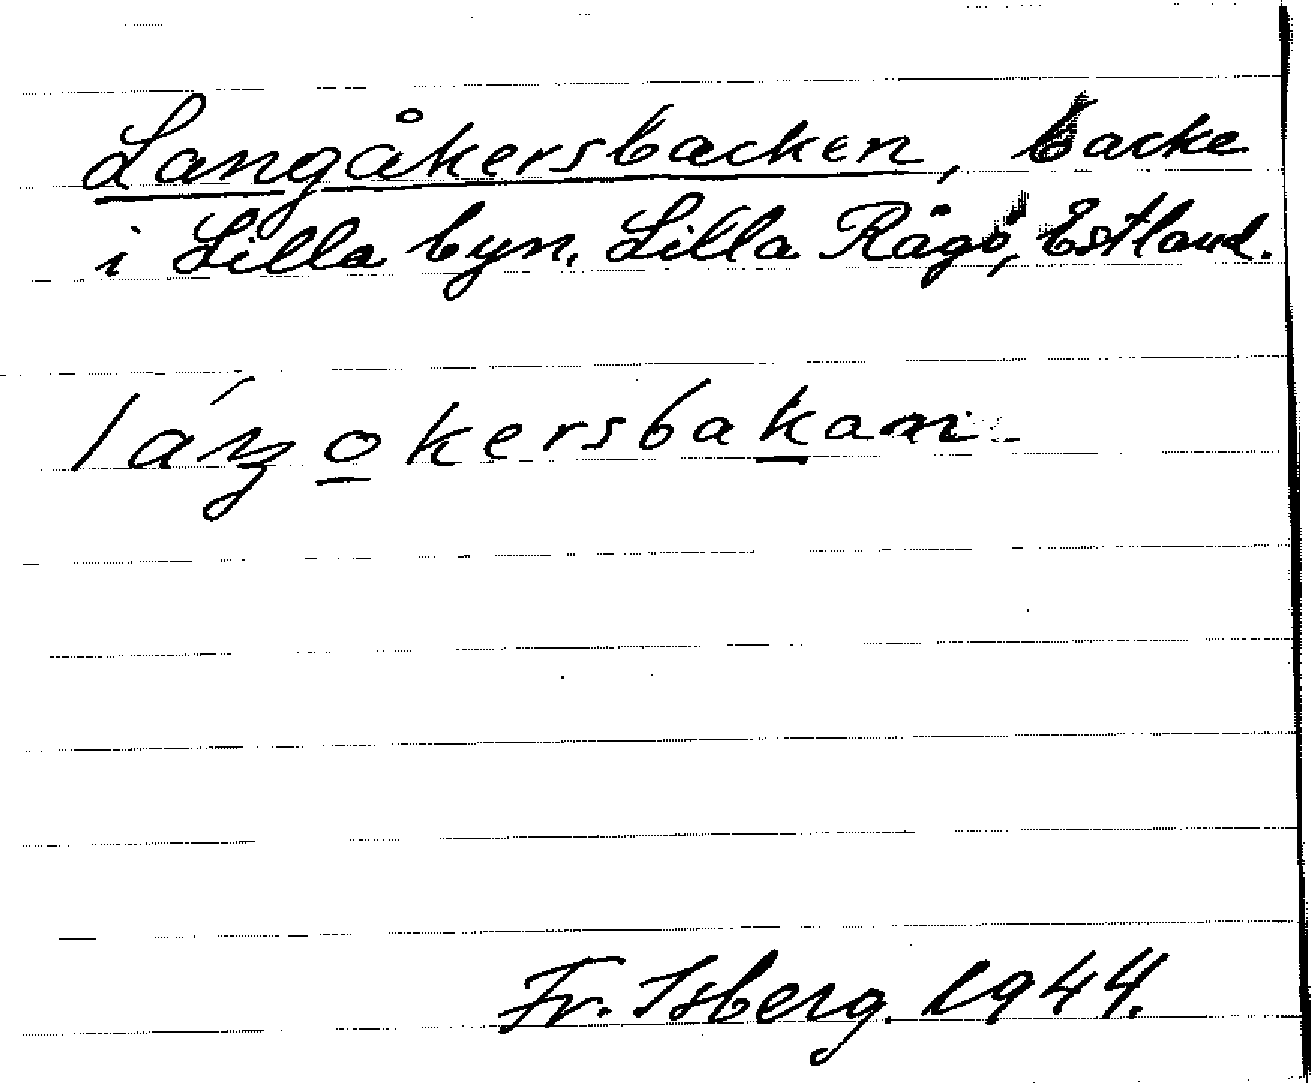 Langåkersbacken, backe
i Lilla byn. Lilla Rågö, Estland.
láŋo̲kersbak̲an
Fr. Isberg. 1944.